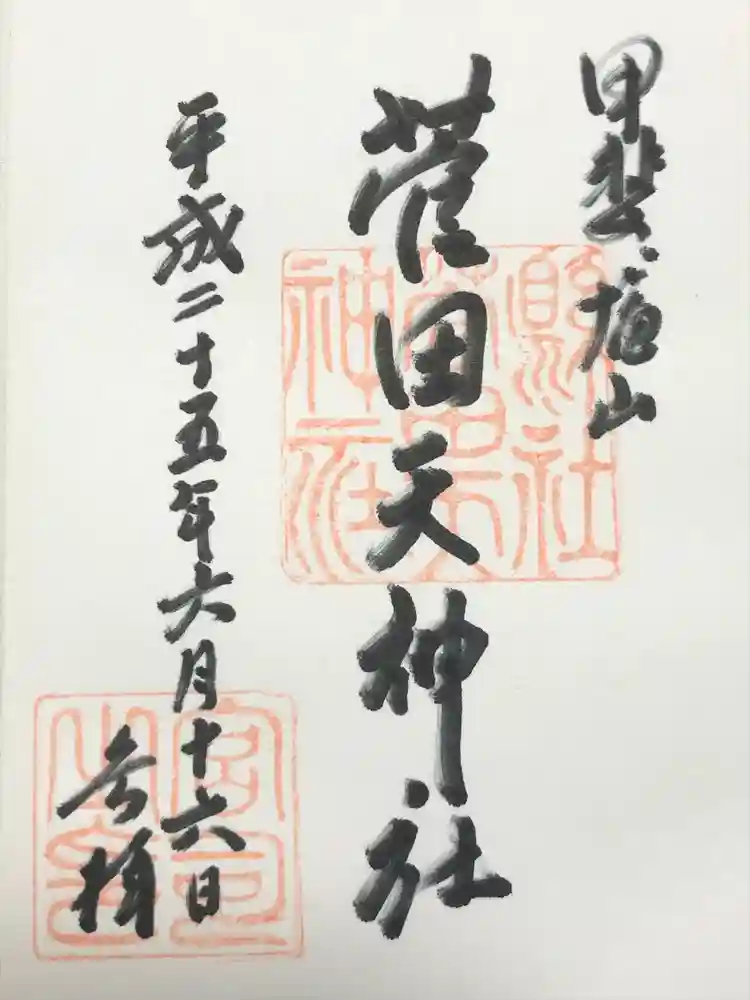 甲斐・塩山
菅田天神社
平成二十五年六月十六日
参拝
縣社
菅田天
神社
宮司
之印